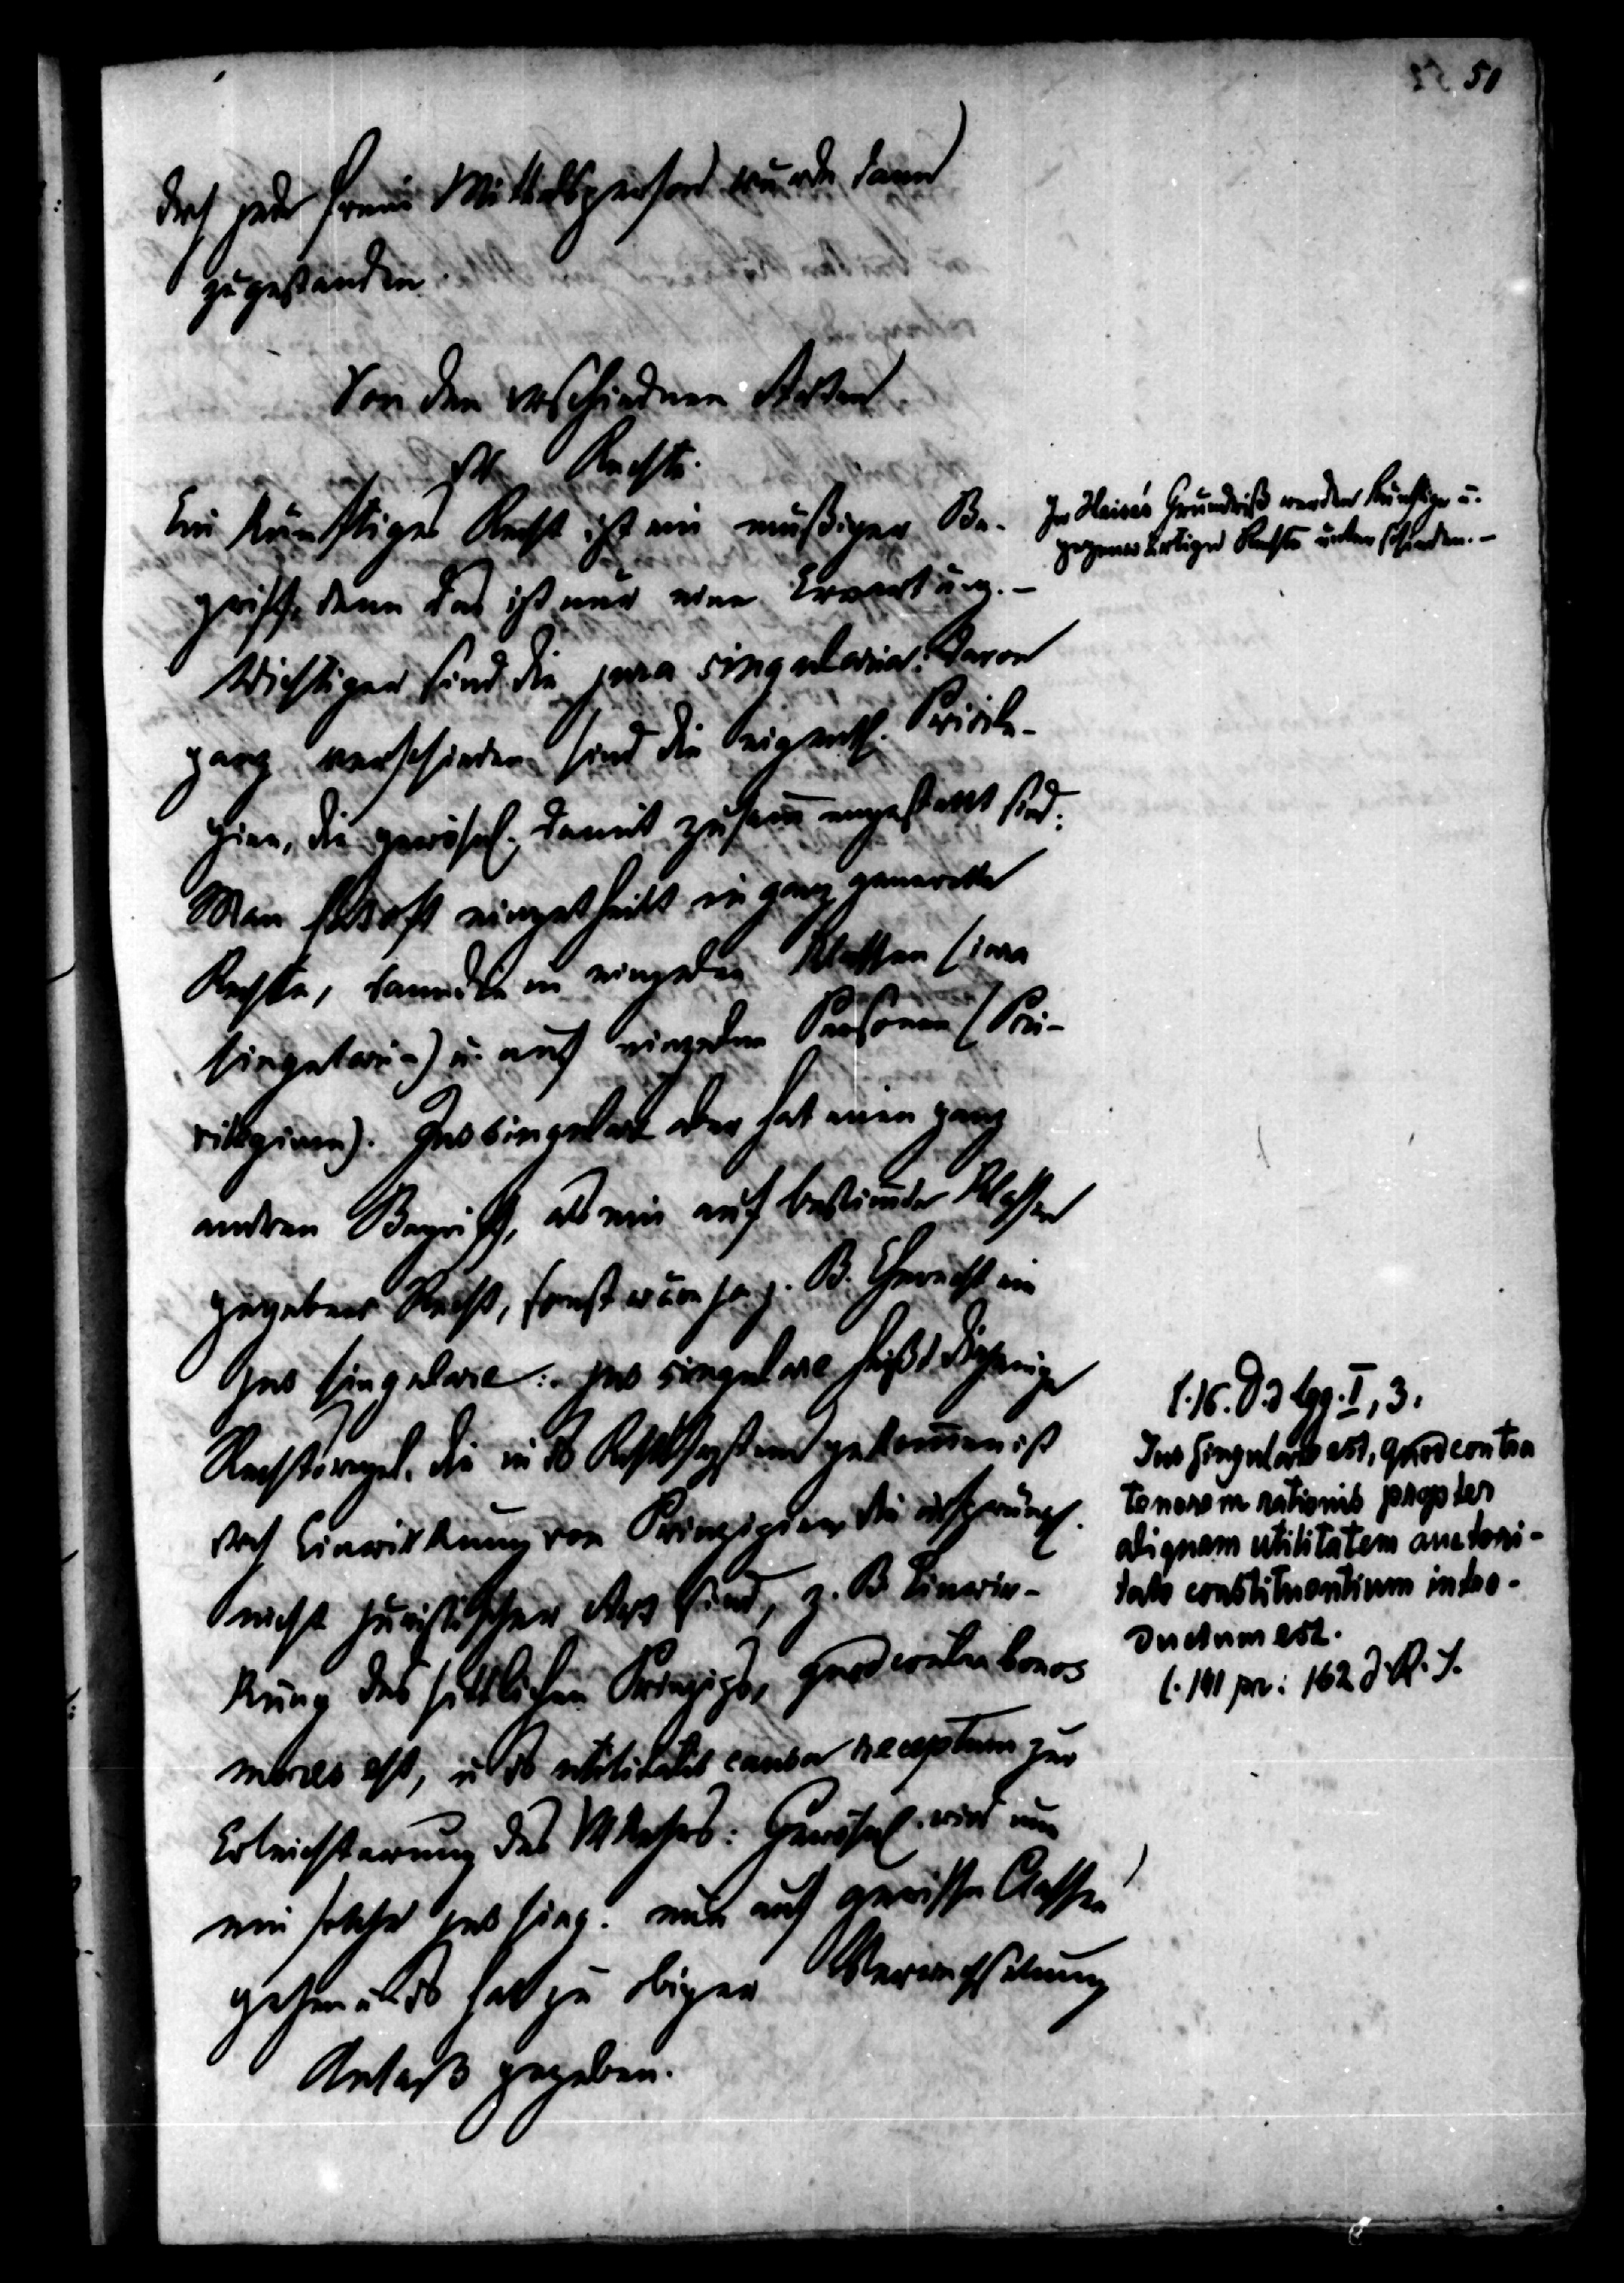 51
durch jede freie Mittelsperson wurde dann
zugestanden.
Von den verschiednen Arten
der Rechte.
Ein künftiges Recht ist ein müßiger Be-
griff, denn das ist nur eine Erwartung. –
In Heise's Grundriß werden künftige u.
gegenwärtige Rechte unterschieden. –
Wichtiger sind die jura singularia. Davon
ganz verschieden sind die eigentl. Privile-
gien, die gewöhnl. damit zusammengestellt sind.
Man hat oft eingetheilt in ganz generelle
Rechte, dann die in einzelnen Klassen (iura
singularia) u. auf einzelne Personen (Pri-
vilegien). Jus singulare aber hat einen ganz
andren Begriff, als ein auf bestimmte Klassen
gegebnes Recht, sonst wäre ja z. B. Eherecht ein
jus singulare. Jus singulare heißt diejenige
Rechtsregel, die in das Rechtssystem gekommen ist
durch Einwirkung von Prinzipien die ursprüngl.
nicht juristischer Art sind, z. B. Einwir-
kung des sittlichen Prinzips, quod contra bonos
mores est, u. das utilitatis causa receptum zur
Erleichterung des Verkehrs. Gewöhnl. wird nun
ein solches jus sing. nur auf gewisse Classen
gehen u. das hat zu obiger Verwechselung
Anlaß gegeben.
l. 16. D. d legg. I, 3.
Jus singulare est, quod contra
tenorem rationis propter
aliquam utilitatem auctori-
tate constituentium intro-
ductum est.
l. 141 pr: 162 d. R. J.